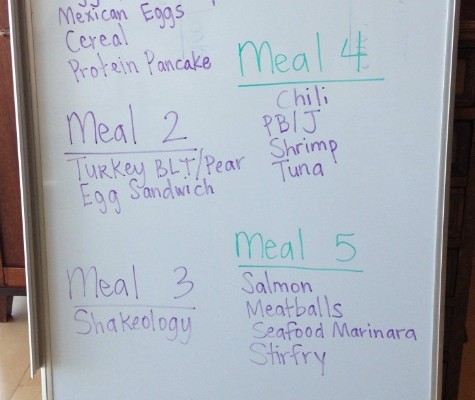 Mexican Eggs
Cereal
Protein Pancake
Meal 2
Turkey BLT/Pear
Egg Sandwich
Meal 3
Shakeology
Meal 4
Chili
PB|J
Shrimp
Tuna
Meal 5
Salmon
Meatballs
Seafood Marinara
Stirfry